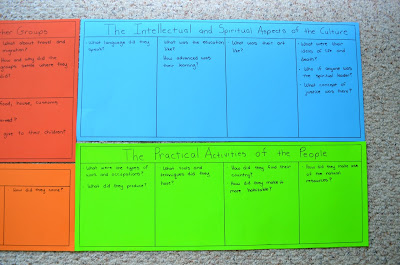 her Groups
What about travel and
migration?
How and why did the
groups settle where they
did?
food, house, customs,
give to their children?
did they come?
The Intellectual and Spiritual Aspects of the Culture
What language did they
speak?
What was the education
like?
How advanced was
their learning?
What was their art
like?
What were their
ideas of life and
death?
Who if anyone was
the spiritual leader?
What concept of
justice was there?
The Practical Activities of the People
What were the types of
work and occupations?
What did they produce?
What tools and
techniques did they
have?
How did they find their
country?
How did they make it
more habitable?
How did they make use
of the natural
resources?